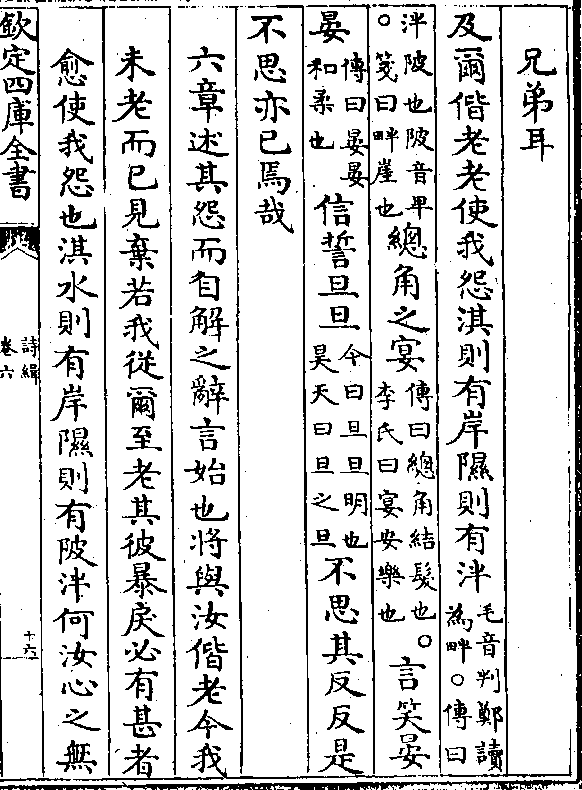 兄弟耳
及爾偕老老使我怨淇則有岸隰則有泮毛音判鄭讀為畔。傳曰
泮陂也陂音卑。箋曰畔崖也總角之宴傳曰總角結髮也。李氏曰宴安樂也言笑晏
晏傳曰晏晏和柔也信誓旦旦今曰旦旦明也昊天曰旦之旦不思其反反是
不思亦已焉哉
六章述其怨而自解之辭言始也將與汝偕老今我
未老而已見棄若我從爾至老其彼暴戾必有甚者
愈使我怨也淇水則有岸隰則有陂泮何汝心之無
欽定四庫全書
詩緝
卷六
十六